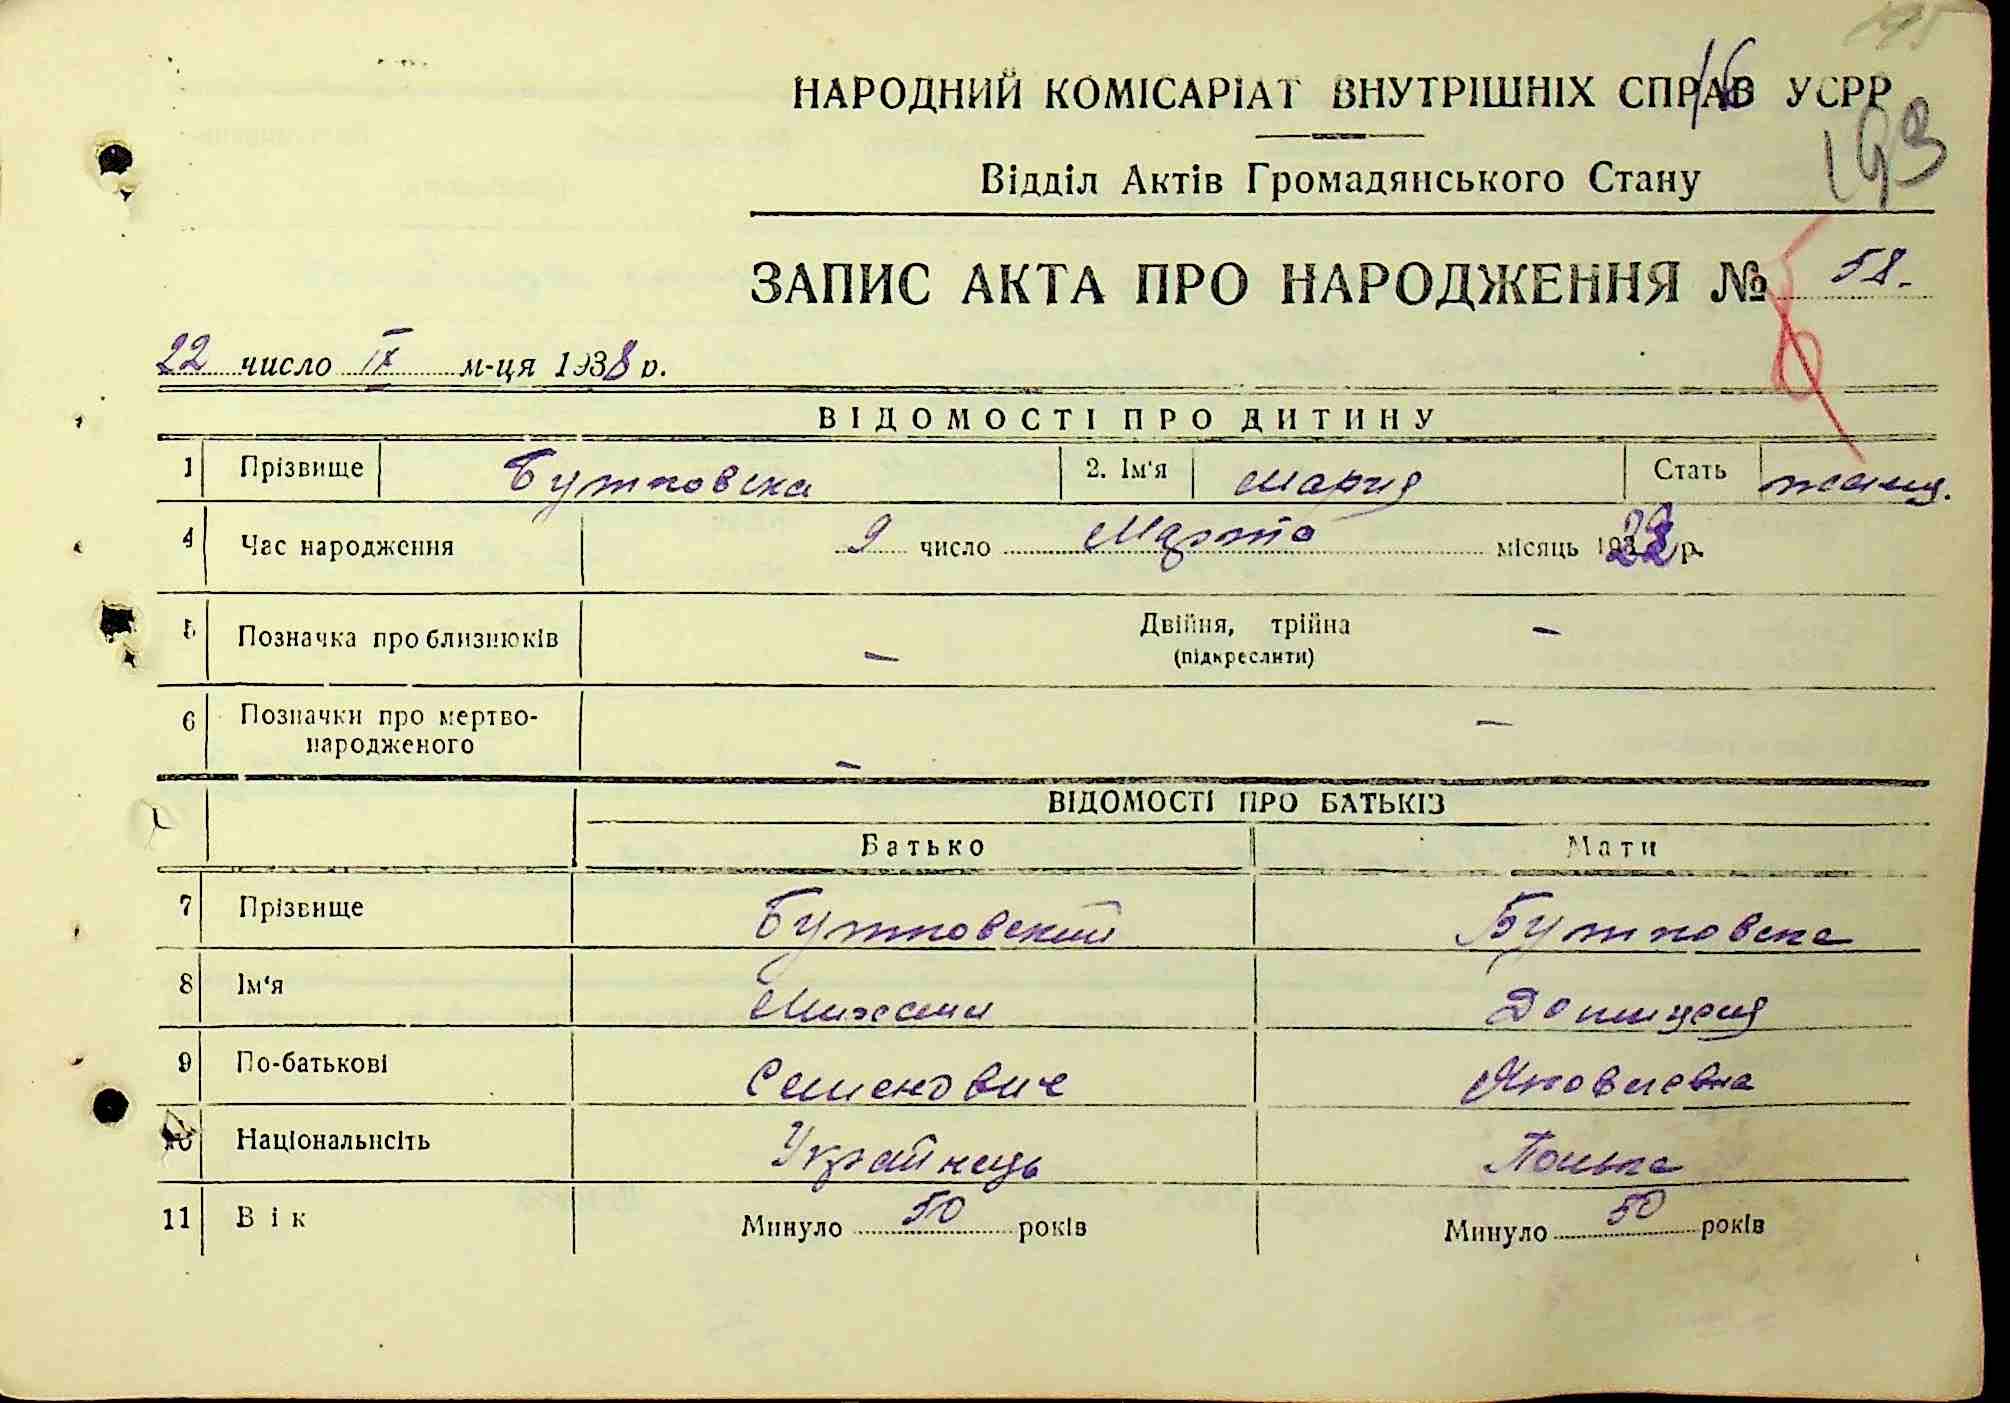 195
НАРОДНИЙ КОМІСАРІАТ ВНУТРІШНІХ СПРАВ УСРР
16
193
Відділ Актів Громадянського Стану
ЗАПИС АКТА ПРО НАРОДЖЕННЯ № 58.
22 число IX м-ця 1938 р.
ВІДОМОСТІ ПРО ДИТИНУ
1 Прізвище Бутковска 2. Ім'я Мария Стать жінц.
4 Час народження 9 число Марта місяць 1923 р.
5 Позначка про близнюків — Двійня, трійна —
(підкреслити)
6 Позначки про мертво- —
народженого —
ВІДОМОСТІ ПРО БАТЬКІВ
Батько Мати
7 Прізвище Бутковский Бутковска
8 Ім'я Михаил Доминция
9 По-батькові Семенович Яковлевна
10 Національнсіть Українець Полька
11 Вік Минуло 50 років Минуло 50 років